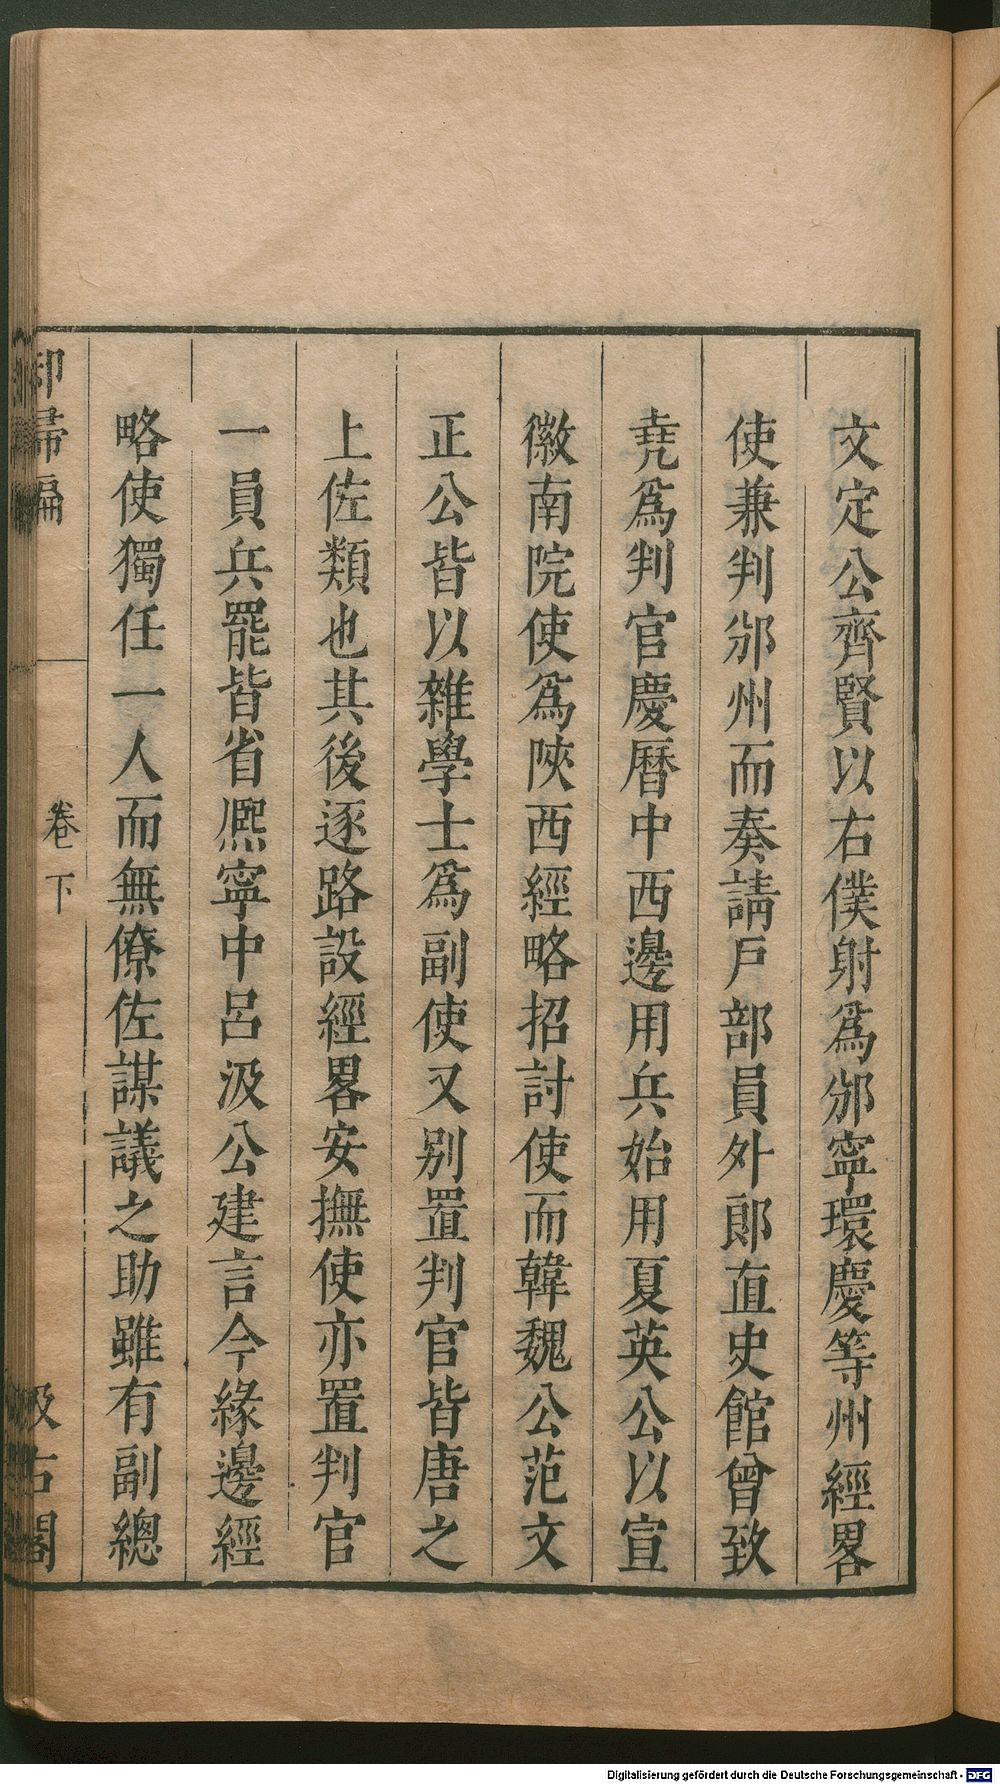 文定公齊賢以右僕射爲邠寧環慶等州經畧
使兼判邠州而奏請戶部員外郎直史館曾致
堯爲判官慶曆中西邊用兵始用夏英公以宣
徽南院使爲陝西經略招討使而韓魏公范文
正公皆以雜學士爲副使又別置判官皆唐之
上佐類也其後逐路設經畧安撫使亦置判官
一員兵罷皆省熈寧中呂汲公建言今緣邊經
略使獨任一人而無僚佐謀議之助雖有副總
却帚編
卷下
汲古閣
Digitalisierung gefördert durch die Deutsche Forschungsgemeinschaft - DFG